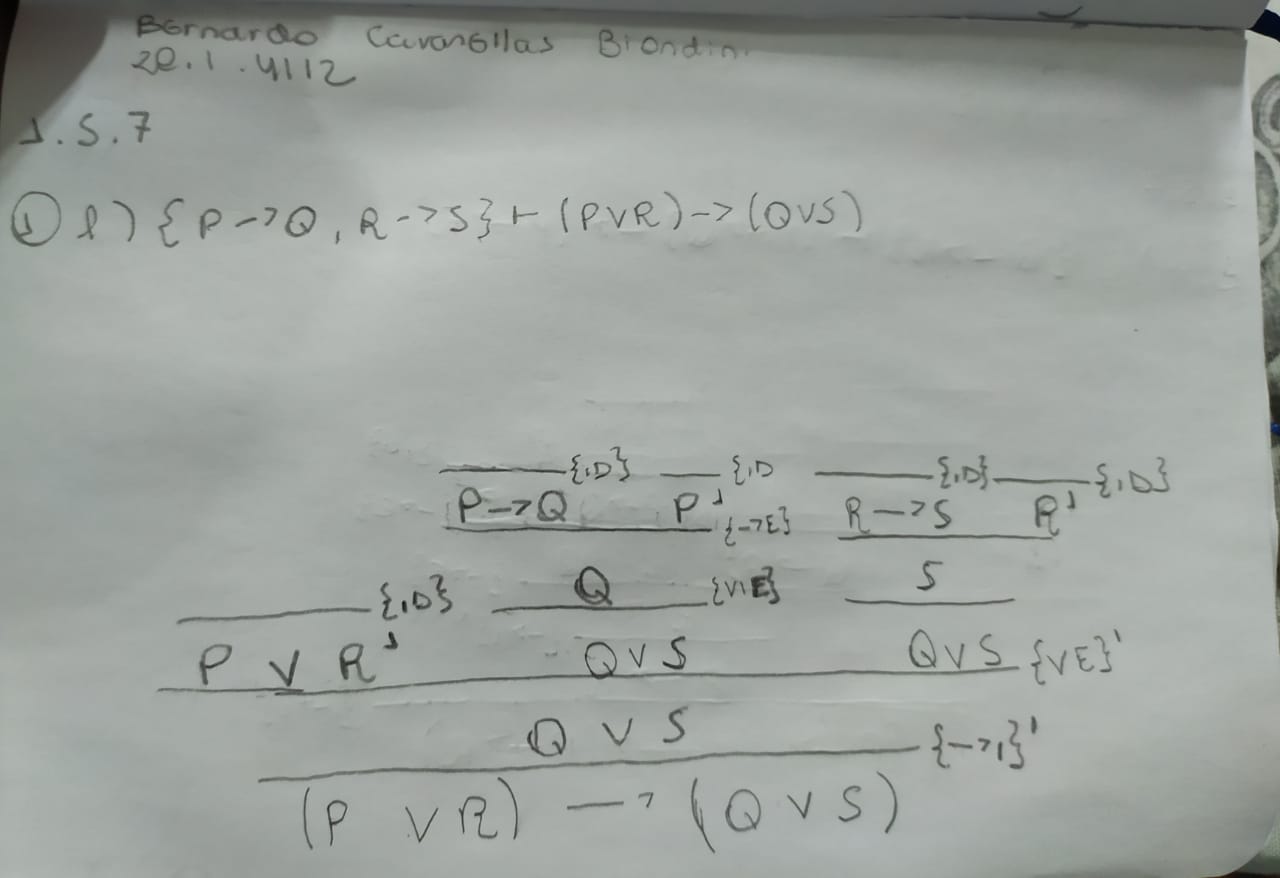 Bernardo Cavanellas Biondini
20.1.4112
1.5.7
① l) {P->Q, R->S} ⊢ (PVR)->(QVS)
{ID} {ID {ID} {ID}
P->Q P¹ {->E} R->S R¹
{ID} Q {VIE} S
P V R¹ QVS QVS {VE}'
Q V S {->I}'
(P V R) -> (Q V S)